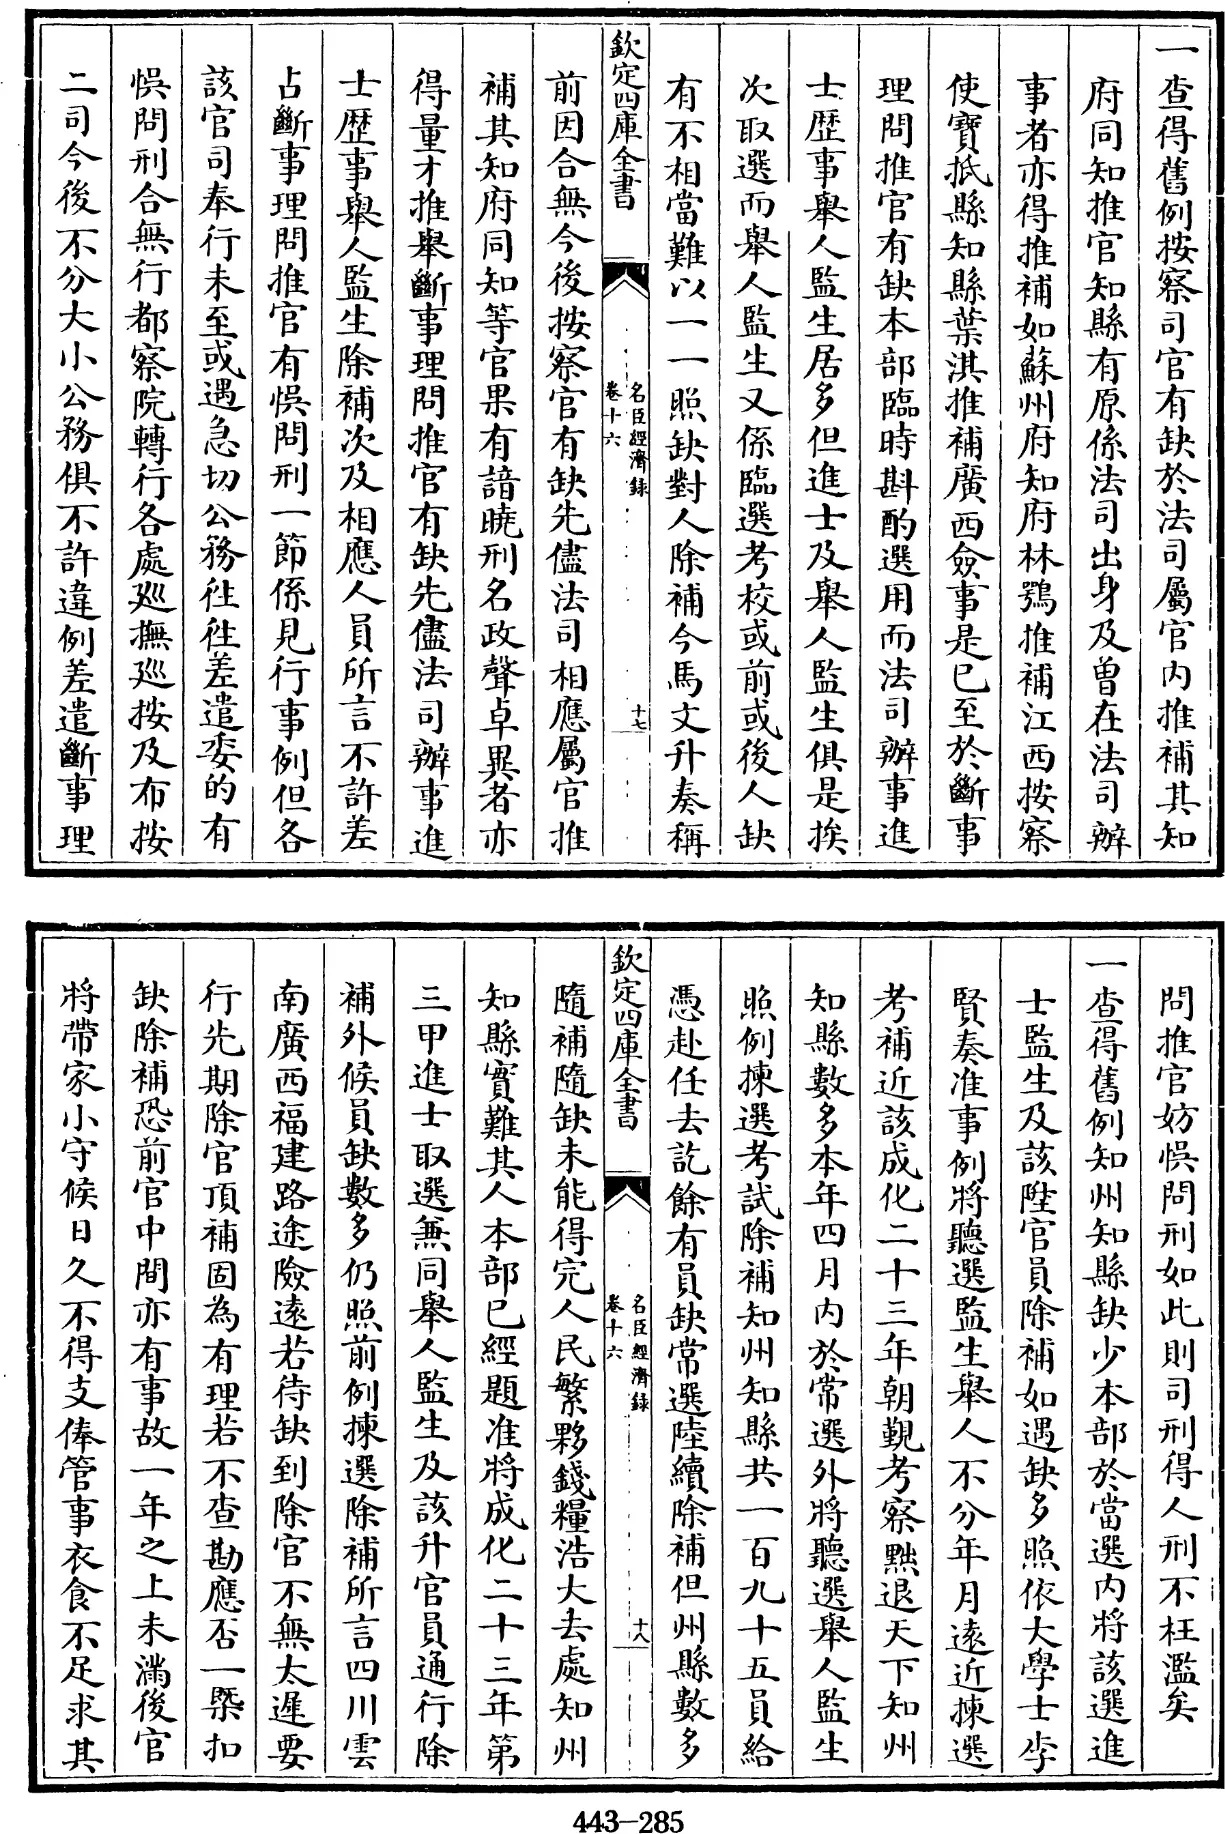 一查得舊例按察司官有缺於法司屬官内推補其知
府同知推官知縣有原係法司出身及曽在法司辦
事者亦得推補如蘇州府知府林鶚推補江西按察
使寶抵縣知縣葉淇推補廣西僉事是已至於斷事
理問推官有缺本部臨時斟酌選用而法司辦事進
士歴事舉人監生居多但進士及舉人監生俱是挨
次取選而舉人監生又係臨選考校或前或後人缺
有不相當難以一一照缺對人除補今馬文升奏稱
欽定四庫全書
名臣經濟録
卷十六
十七
前因合無今後按察官有缺先儘法司相應屬官推
補其知府同知等官果有諳曉刑名政聲卓異者亦
得量才推舉斷事理問推官有缺先儘法司辦事進
士歴事舉人監生除補次及相應人員所言不許差
占斷事理問推官有悞問刑一節係見行事例但各
該官司奉行未至或遇急切公務徃徃差遣委的有
悞問刑合無行都察院轉行各處廵撫廵按及布按
二司今後不分大小公務俱不許違例差遣斷事理
問推官妨悞問刑如此則司刑得人刑不枉濫矣
一查得舊例知州知縣缺少本部於當選内將該選進
士監生及該陞官員除補如遇缺多照依大學士李
賢奏准事例將聽選監生舉人不分年月逺近揀選
考補近該成化二十三年朝覲考察黜退天下知州
知縣數多本年四月内於常選外將聽選舉人監生
照例揀選考試除補知州知縣共一百九十五員給
憑赴任去訖餘有員缺常選陸續除補但州縣數多
欽定四庫全書
名臣經濟録
卷十六
十八
隨補隨缺未能得完人民繁夥錢糧浩大去處知州
知縣實難其人本部已經題准將成化二十三年第
三甲進士取選兼同舉人監生及該升官員通行除
補外候員缺數多仍照前例揀選除補所言四川雲
南廣西福建路途險逺若待缺到除官不無太遲要
行先期除官頂補固為有理若不查勘應否一槩扣
缺除補恐前官中間亦有事故一年之上未滿後官
將帶家小守候日久不得支俸管事衣食不足求其
443-285